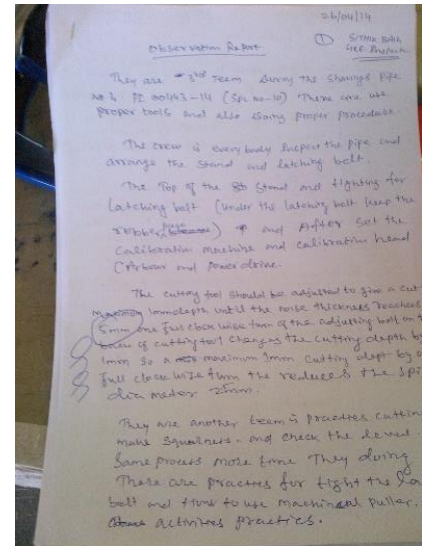 26/04/14
Observation Report
①
They are 3rd Team during the Pipe
No 3 PI 00443-14 (Spl no-10) There are use
proper tools and also using proper procedure.
The crew is everybody inspect the pipe and
arrange the stand and latching belt.
The Top of the Stand and tighting for
Latching belt (under the latching belt keep the
robber) and After set the
Calibration machine and calibration head
(Arbour and Power drive.
The cutting tool should be adjusted to give a cut
1mm depth until the nose thickness reaches
5mm one full clock wise turn of the adjusting bolt on t
of cutting tool changes the cutting depth by
1mm so a maximum 1mm cutting dept by o
full clock wise turn the reduces the spi
dia meter 2mm.
They are another team is practies cuttin
make squalness. and check the level.
Same process more time They doing
These are practies for tight the la
bolt and to use machineal puller.
activites practics.